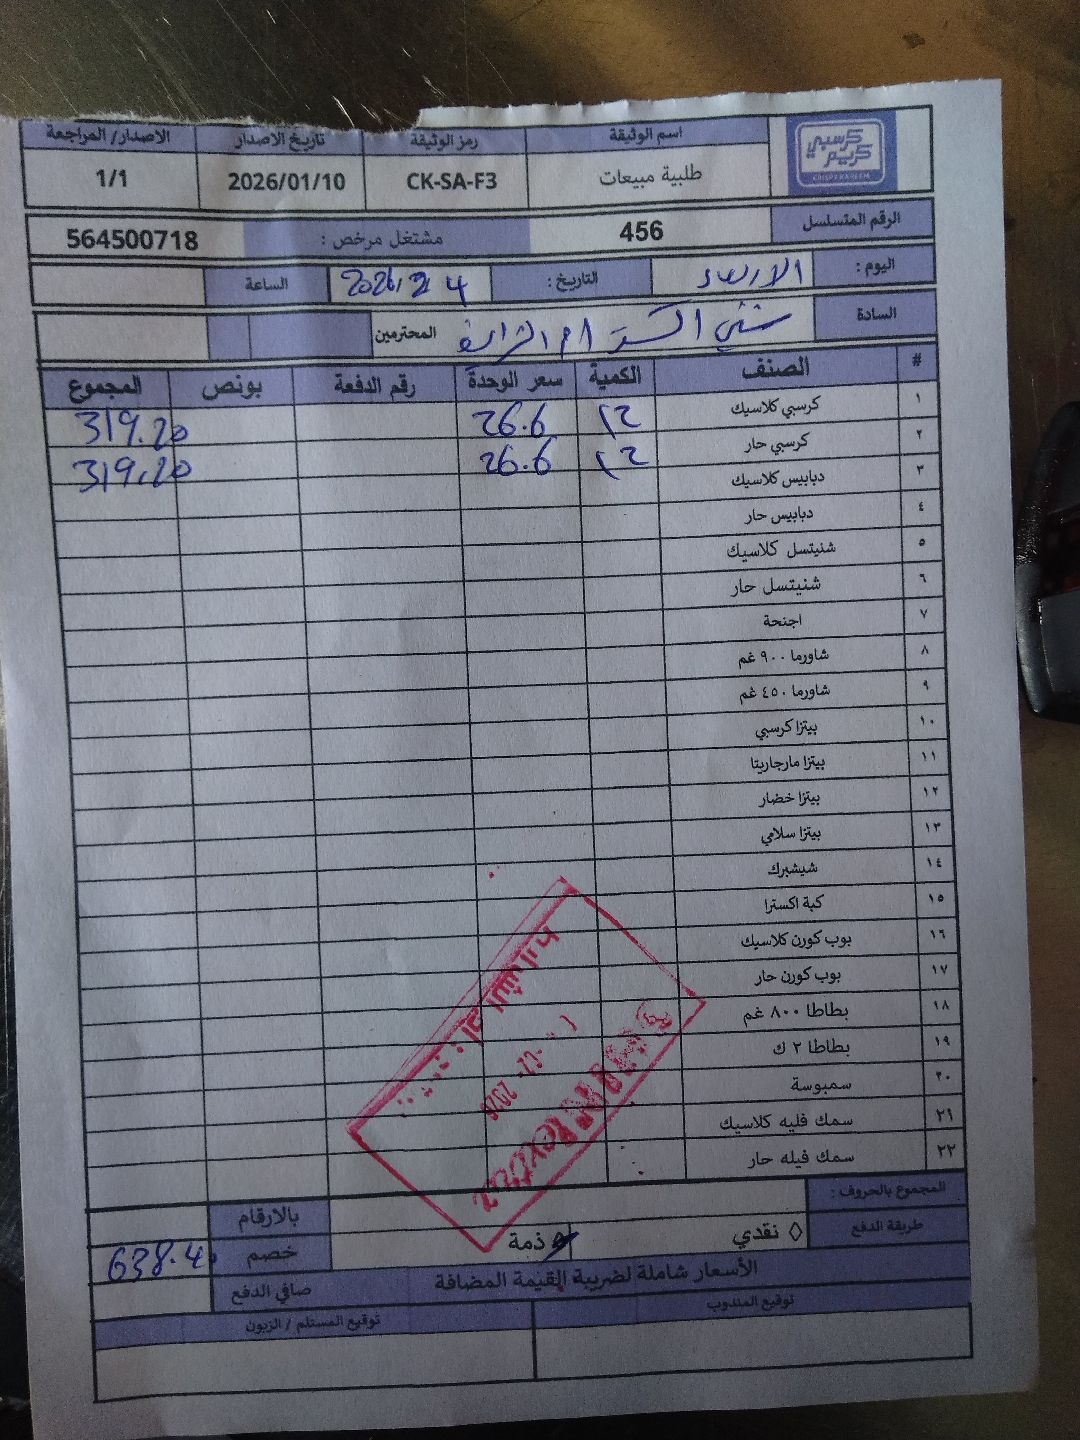 اسم الوثيقة رمز الوثيقة تاريخ الاصدار الاصدار/ المراجعة
كرسبي كريم
CRISPY KAREEM
طلبية مبيعات CK-SA-F3 2026/01/10 1/1
الرقم المتسلسل 456 مشتغل مرخص : 564500718
اليوم : الاربعاء التاريخ : 2026/2/4 الساعة
السادة المحترمين
# الصنف الكمية سعر الوحدة رقم الدفعة بونص المجموع
١ كرسبي كلاسيك ١٢ 26.6 319.20
٢ كرسبي حار ١٢ 26.6 319.20
٣ دبابيس كلاسيك
٤ دبابيس حار
٥ شنيتسل كلاسيك
٦ شنيتسل حار
٧ اجنحة
٨ شاورما ٩٠٠ غم
٩ شاورما ٤٥٠ غم
١٠ بيتزا كرسبي
١١ بيتزا مارجاريتا
١٢ بيتزا خضار
١٣ بيتزا سلامي
١٤ شيشبرك
١٥ كبة اكسترا
١٦ بوب كورن كلاسيك
١٧ بوب كورن حار
١٨ بطاطا ٨٠٠ غم
١٩ بطاطا ٢ ك
٢٠ سمبوسة
٢١ سمك فليه كلاسيك
٢٢ سمك فيله حار
المجموع بالحروف : بالارقام
طريقة الدفع ◊ نقدي ◊ ذمة خصم 638.40
الأسعار شاملة لضريبة القيمة المضافة صافي الدفع
توقيع المندوب توقيع المستلم / الزبون
-02- 2026